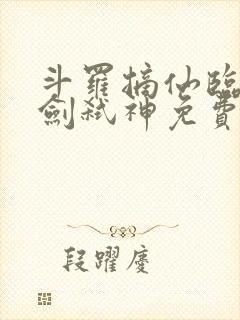 斗羅摘仙臨
劍弒神免費
段躍慶